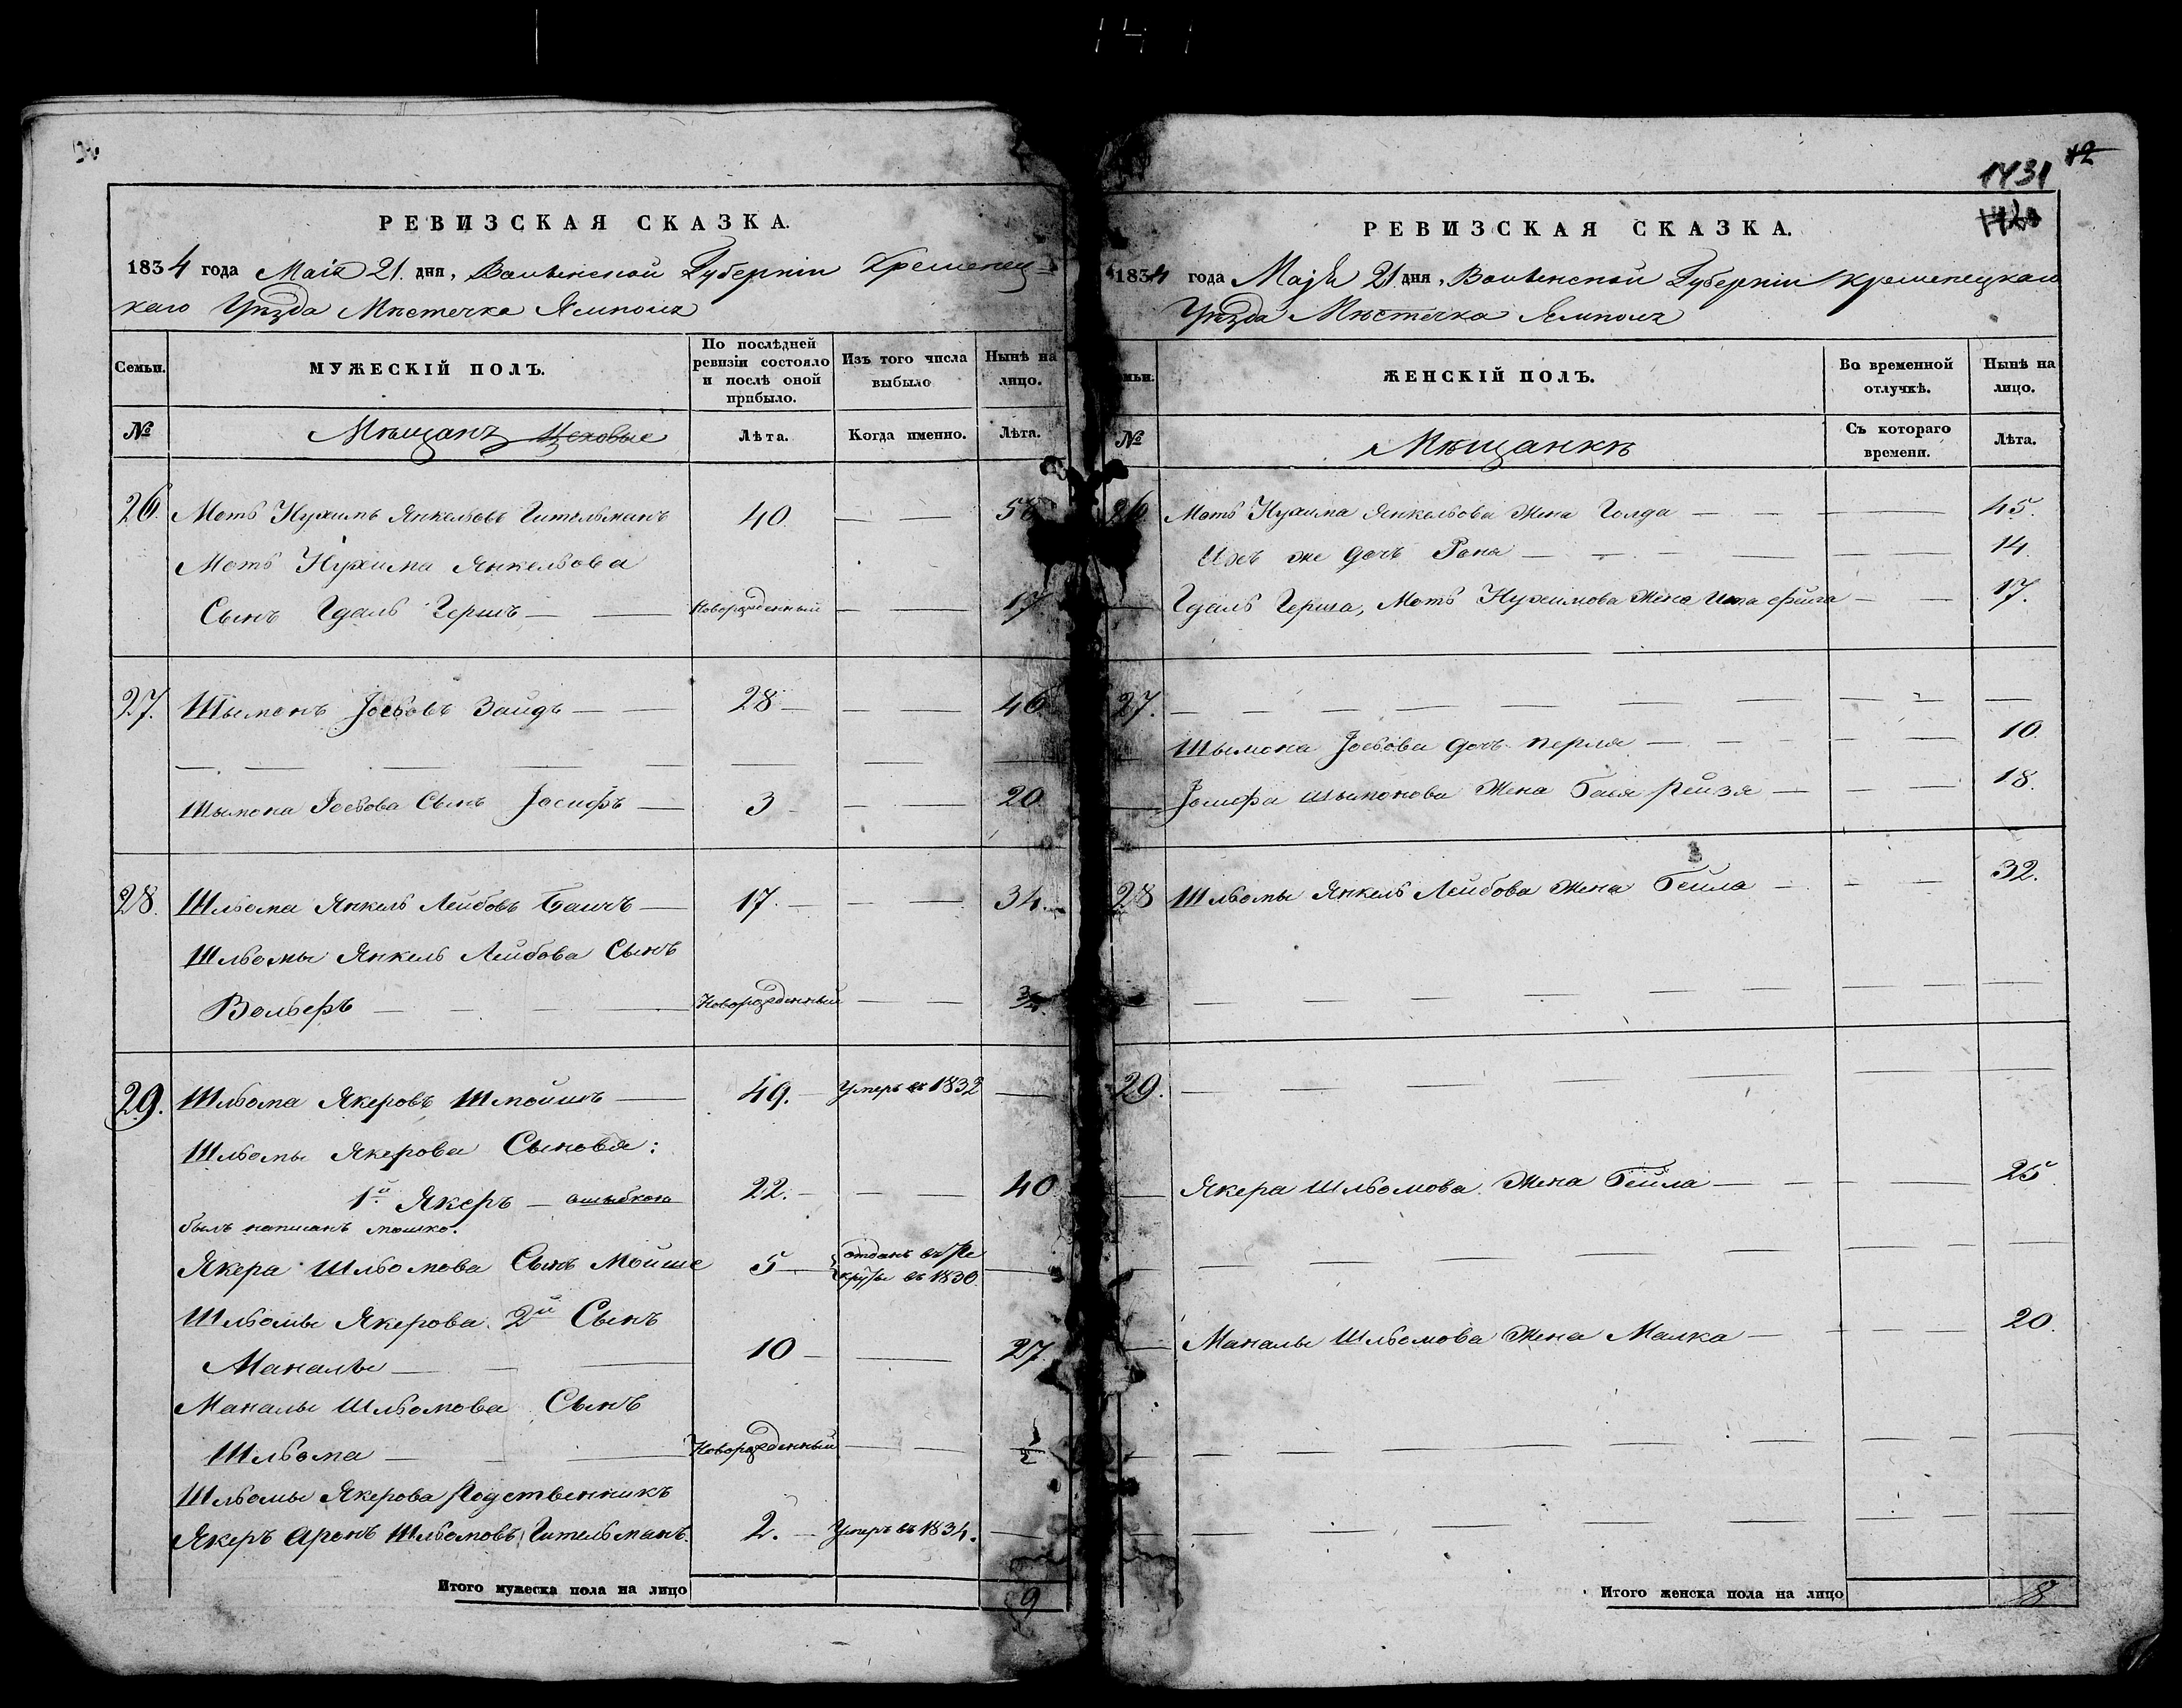 141
РЕВИЗСКАЯ СКАЗКА.
1834 года Маія 21. дня, Волынской Губерніи Кременец=
каго Уѣзда Мѣстечка Ямполя
Семьи.
МУЖЕСКІЙ ПОЛЪ.
По послѣдней ревизіи состояло и послѣ оной прибыло.
Изъ того числа выбыло
Нынѣ на лицо.
№
Мѣщанъ цеховые
Лѣта.
Когда именно.
Лѣта.
26. Моть Нухимъ Янкельовъ Гительманъ 40. 58
Моть Нухима Янкельова
Сынъ Гдаль Гершъ Новорожденный 17
27. Шымонъ Іосьовъ Зайдъ 28 46
Шымона Іосьова Сынъ Іосифъ 3 20.
28. Шльома Янкель Лейбовъ Баичъ 17. 34.
Шльомы Янкель Лейбова Сынъ
Вольфъ Новорожденный 3/4.
29. Шльома Якеровъ Шмойшъ 49. Умеръ въ 1832
Шльомы Якерова Сыновья:
1й Якеръ — ошыбкою 22. 40
былъ написанъ мошко.
Якера Шльомова Сынъ Мойше 5 отданъ въ Ре
круты въ 1830.
Шльомы Якерова 2й Сынъ
Маналы 10 27.
Маналы Шльомова Сынъ
Шльома Новорожденный 1/2
Шльомы Якерова Родственникъ
Якеръ Аронъ Шльомовъ Гительманъ. 2. Умеръ въ 1834.
Итого мужеска пола на лицо 9
42
1431
РЕВИЗСКАЯ СКАЗКА.
1834 года Маія 21 дня, Волынской Губерніи Кременецкаго
Уѣзда Мѣстечка Ямполя
ЖЕНСКІЙ ПОЛЪ.
Во временной отлучкѣ.
Нынѣ на лицо.
№
Мѣщанкѣ
Съ котораго времени.
Лѣта.
26. Моть Нухима Янкельова Жена Голда 45.
Ихъ же дочъ Рання 14.
Гдаль Герша, Моть Нухимова Жена Ита Фейга 17.
27.
Шымона Іосьова дочъ Перля 10
Іосифа Шымонова Жена Бася Рейзя 18.
28 Шльомы Янкель Лейбова Жена Бейла 32.
29.
Якера Шльомова Жена Бейла 25
Маналы Шльомова Жена Малка 20.
Итого женска пола на лицо 8